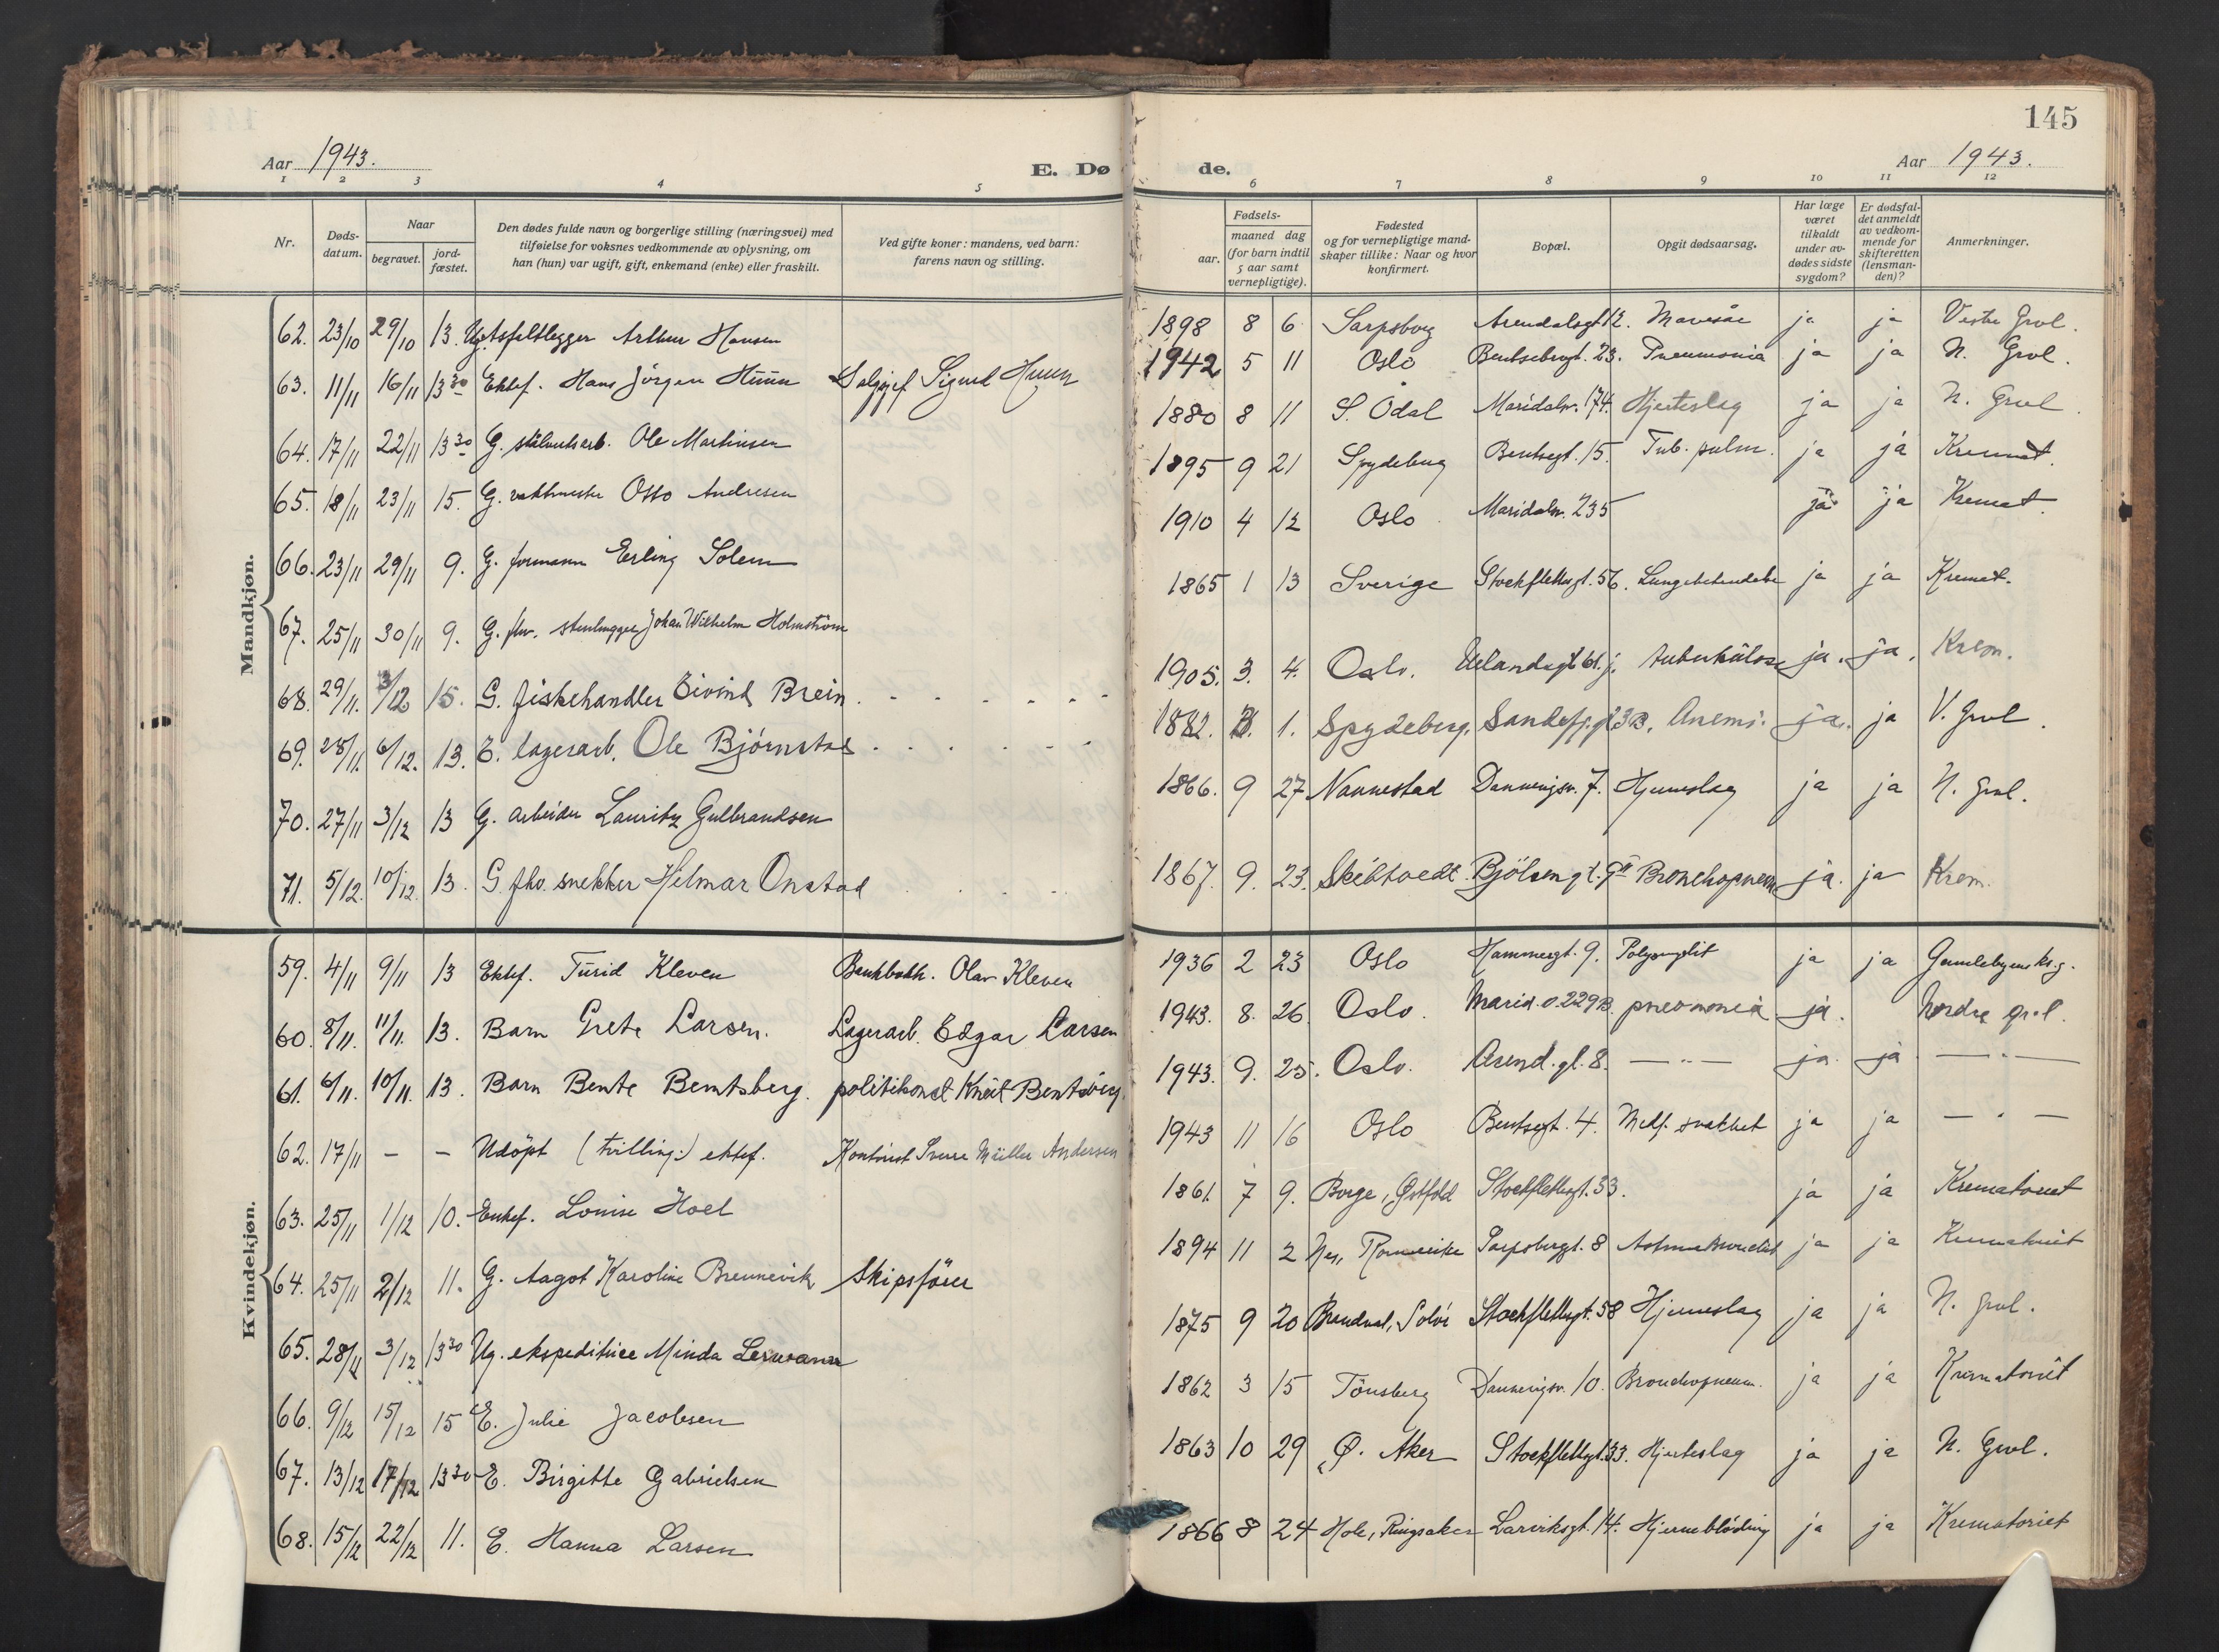 145
Aar 1943.
E. Dø
de.
Aar 1943.
1 2 3 4 5 6 7 8 9 10 11 12
Nr.
Døds-
datum.
Naar
begravet.
jord-
fæstet.
Den dødes fulde navn og borgerlige stilling (næringsvei) med
tilføielse for voksnes vedkommende av oplysning, om
han (hun) var ugift, gift, enkemand (enke) eller fraskilt.
Ved gifte koner: mandens, ved barn:
farens navn og stilling.
Fødsels-
aar.
maaned dag
(for barn indtil
5 aar samt
vernepligtige).
Fødested
og for vernepligtige mand-
skaper tillike: Naar og hvor
konfirmert.
Bopæl.
Opgit dødsaarsag.
Har læge
været
tilkaldt
under av-
dødes sidste
sygdom?
Er dødsfal-
det anmeldt
av vedkom-
mende for
skifteretten
(lensman-
den)?
Anmerkninger.
Mandkjøn.
62. 23/10 29/10 13. Arthur Hansen 1898 8 6 Sarpsborg Arendalsgt. 12. Mavesår ja ja Vestre Grvl.
63. 11/11 16/11 13 30 Ektef. Hans Jörgen Huun Salgssjef Sigurd Huun 1942 5 11 Oslo Bentsebrugt. 23. Pneumonia ja ja N. Grvl.
64. 17/11 22/11 13 30 G. Ole Martinsen 1880 8 11 S. Odal Maridalsv. 174. Hjerteslag ja ja N. Grvl.
65. 18/11 23/11 15. G. vaktmester Otto Andresen 1895 9 21 Spydeberg Bentsegt. 15. Tub. pulm. ja ja Kremat.
66. 23/11 29/11 9. G. formann Erling Solem 1910 4 12 Oslo Maridalsv. 235 ja ja Kremat.
67. 25/11 30/11 9. G. fhv. stenhugger Johan Wilhelm Holmström 1865 1 13 Sverige Stockflethsgt. 56. Lungebetendelse ja ja Kremat.
68. 29/11. 3/12 15. G. fiskehandler Eivind Brein. 1905. 3. 4. Oslo. Uelandsgt 61. j. tuberkulose ja. ja. Krem.
69. 28/11. 6/12. 13. E. lagerarb. Ole Bjørnstad 1882. 1. Spydeberg. Sandefj.gt 3B. Anemi. ja. ja V. Grvl.
70. 27/11 3/12 13 G. arbeider Lauritz Gulbrandsen 1866. 9 27 Nannestad Dannevigsv. 7. Hjerneslag ja ja N. Grvl.
71. 5/12. 10/12. 13. G. fhv. snekker Hilmar Onstad 1867. 9. 23. Skibtvedt. Bjölsengt. 9 II Bronchopneum. ja. ja Krem.
Kvindekjøn.
59. 4/11 9/11 13 Ektef. Turid Kleven Olav Kleven 1936 2 23 Oslo Hammergt. 9. ja ja Gamlebyens kg.
60. 8/11. 11/11. 13. Barn Grete Larsen. Lagerarb. Edgar Larsen 1943. 8. 26. Oslo. Marid.v. 229B. pneumonia ja. Nordre grvl.
61. 6/11. 10/11. 13. Barn Bente Berntsberg. politikonst Knut Bentsberg. 1943. 9. 25. Oslo. Arend.gt. 8. — " — ja. ja — " —
62. 17/11 - - Udöpt (tvilling:) ektef. Kontorist Sverre Müller Andersen 1943 11 16 Oslo Bentsegt. 4. Medf. svakhet ja ja — " —
63. 25/11 1/12 10. Enkef. Louise Hoel 1861. 7 9. Borge, Østfold Stockflethsgt. 33. ja ja Krematoriet
64. 25/11 2/12 11. G. Aagot Karoline Brennevik Skipsfører 1894 11 2 Nes, Romerike Sarpsborggt. 8 ja ja Krematoriet
65. 28/11 3/12 13 30 Ug. ekspeditrice Minda 1875 9 20 Brandval, Solör Stockflethsgt. 58 Hjerneslag ja ja N. grvl.
66. 9/12 15/12 15 E. Julie Jacobsen 1862 3 15 Tönsberg Dannevigsv. 10. Bronchopneum. ja ja Krematoriet
67. 13/12 17/12 13 30 E. Birgitte Gabrielsen 1863 10 29 Ø. Aker Stockflethsgt. 33. Hjerteslag ja ja N. Grvl.
68. 15/12 22/12 11. E. Hanna Larsen 1866 8 24 Hole, Ringsaker Larviksgt. 14. Hjerneblödning ja ja Krematoriet